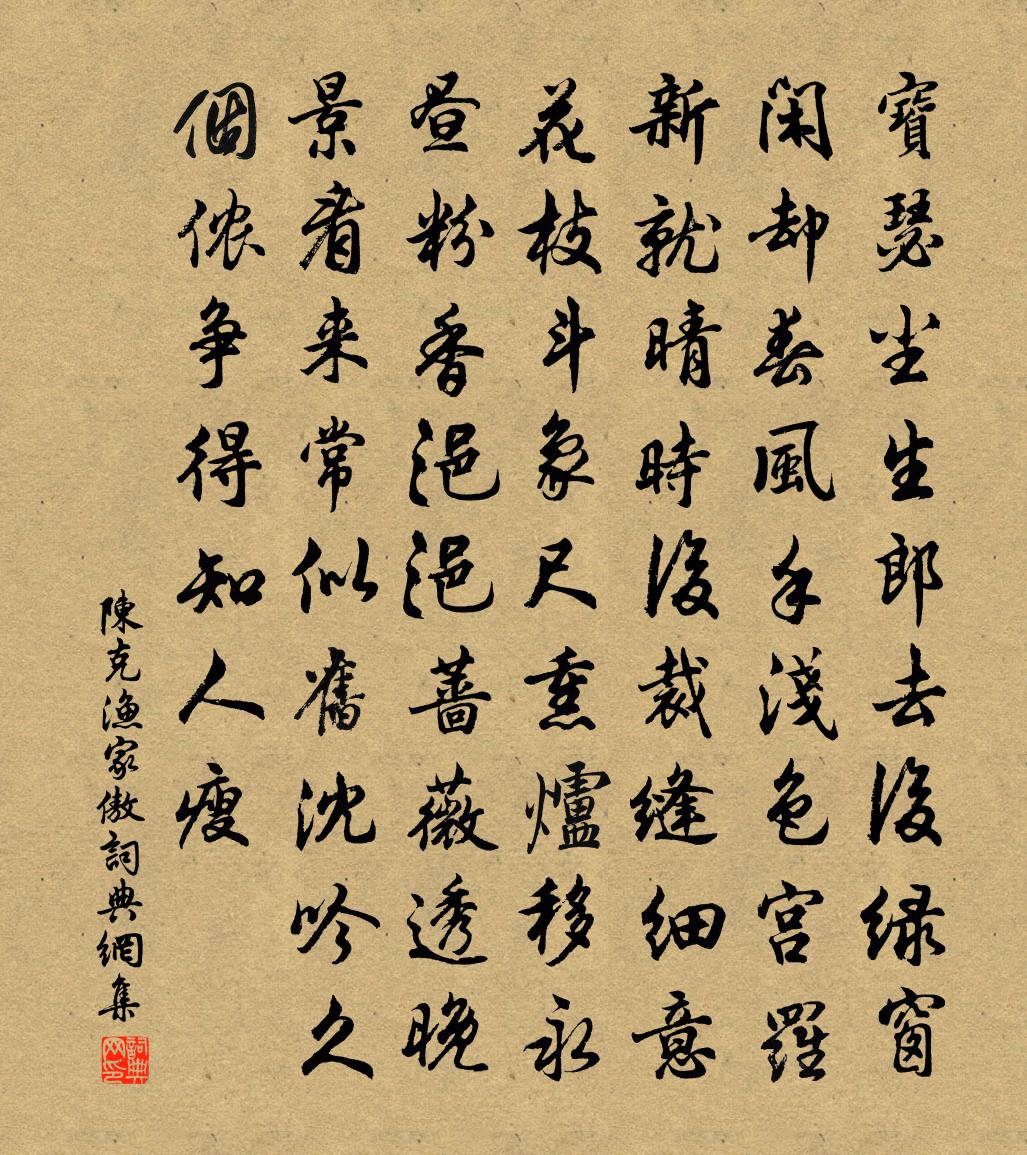 寶瑟尘生郎去後绿窗
閑却春風手淺色宫羅
新就晴時後裁縫细意
花枝斗象尺熏爐移永
昼粉香浥浥薔薇透晚
景看来常似舊沈吟久
個侬争得知人瘦
陳克漁家傲詞典網集
詞典网印